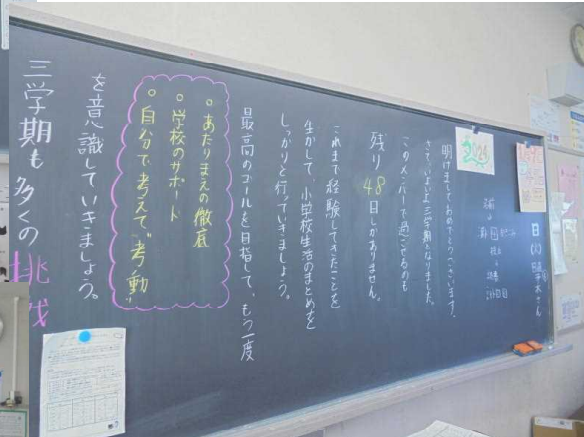 日
(火)
2024
明けましておめでとうございます。
さて、いよいよ三学期となりました。
このメンバーで過ごせるのも
残り48日しかありません。
これまで経験してきたことを
生かして、小学校生活のまとめを
しっかりと行っていきましょう。
最高のゴールを目指して、もう一度
・あたりまえの徹底
・学校のサポート
・自分で考えて"考動"
を意識していきましょう。
三学期も多くの挑戦